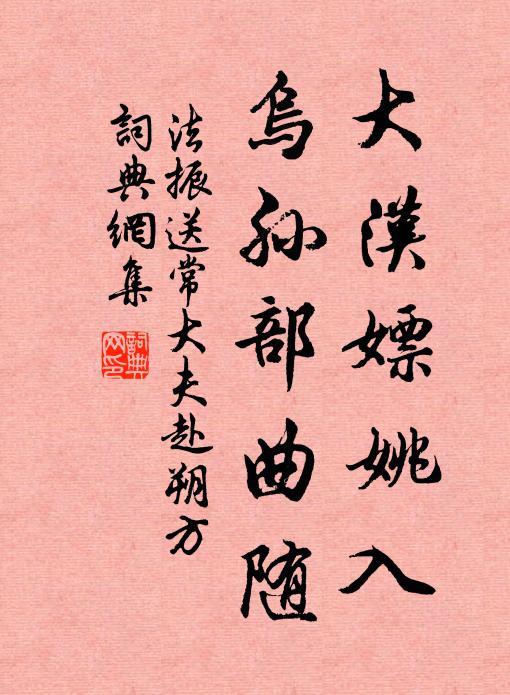 大漠嫖姚入
烏孙部曲随
法振送常大夫赴朔方
詞典網集
詞典网印